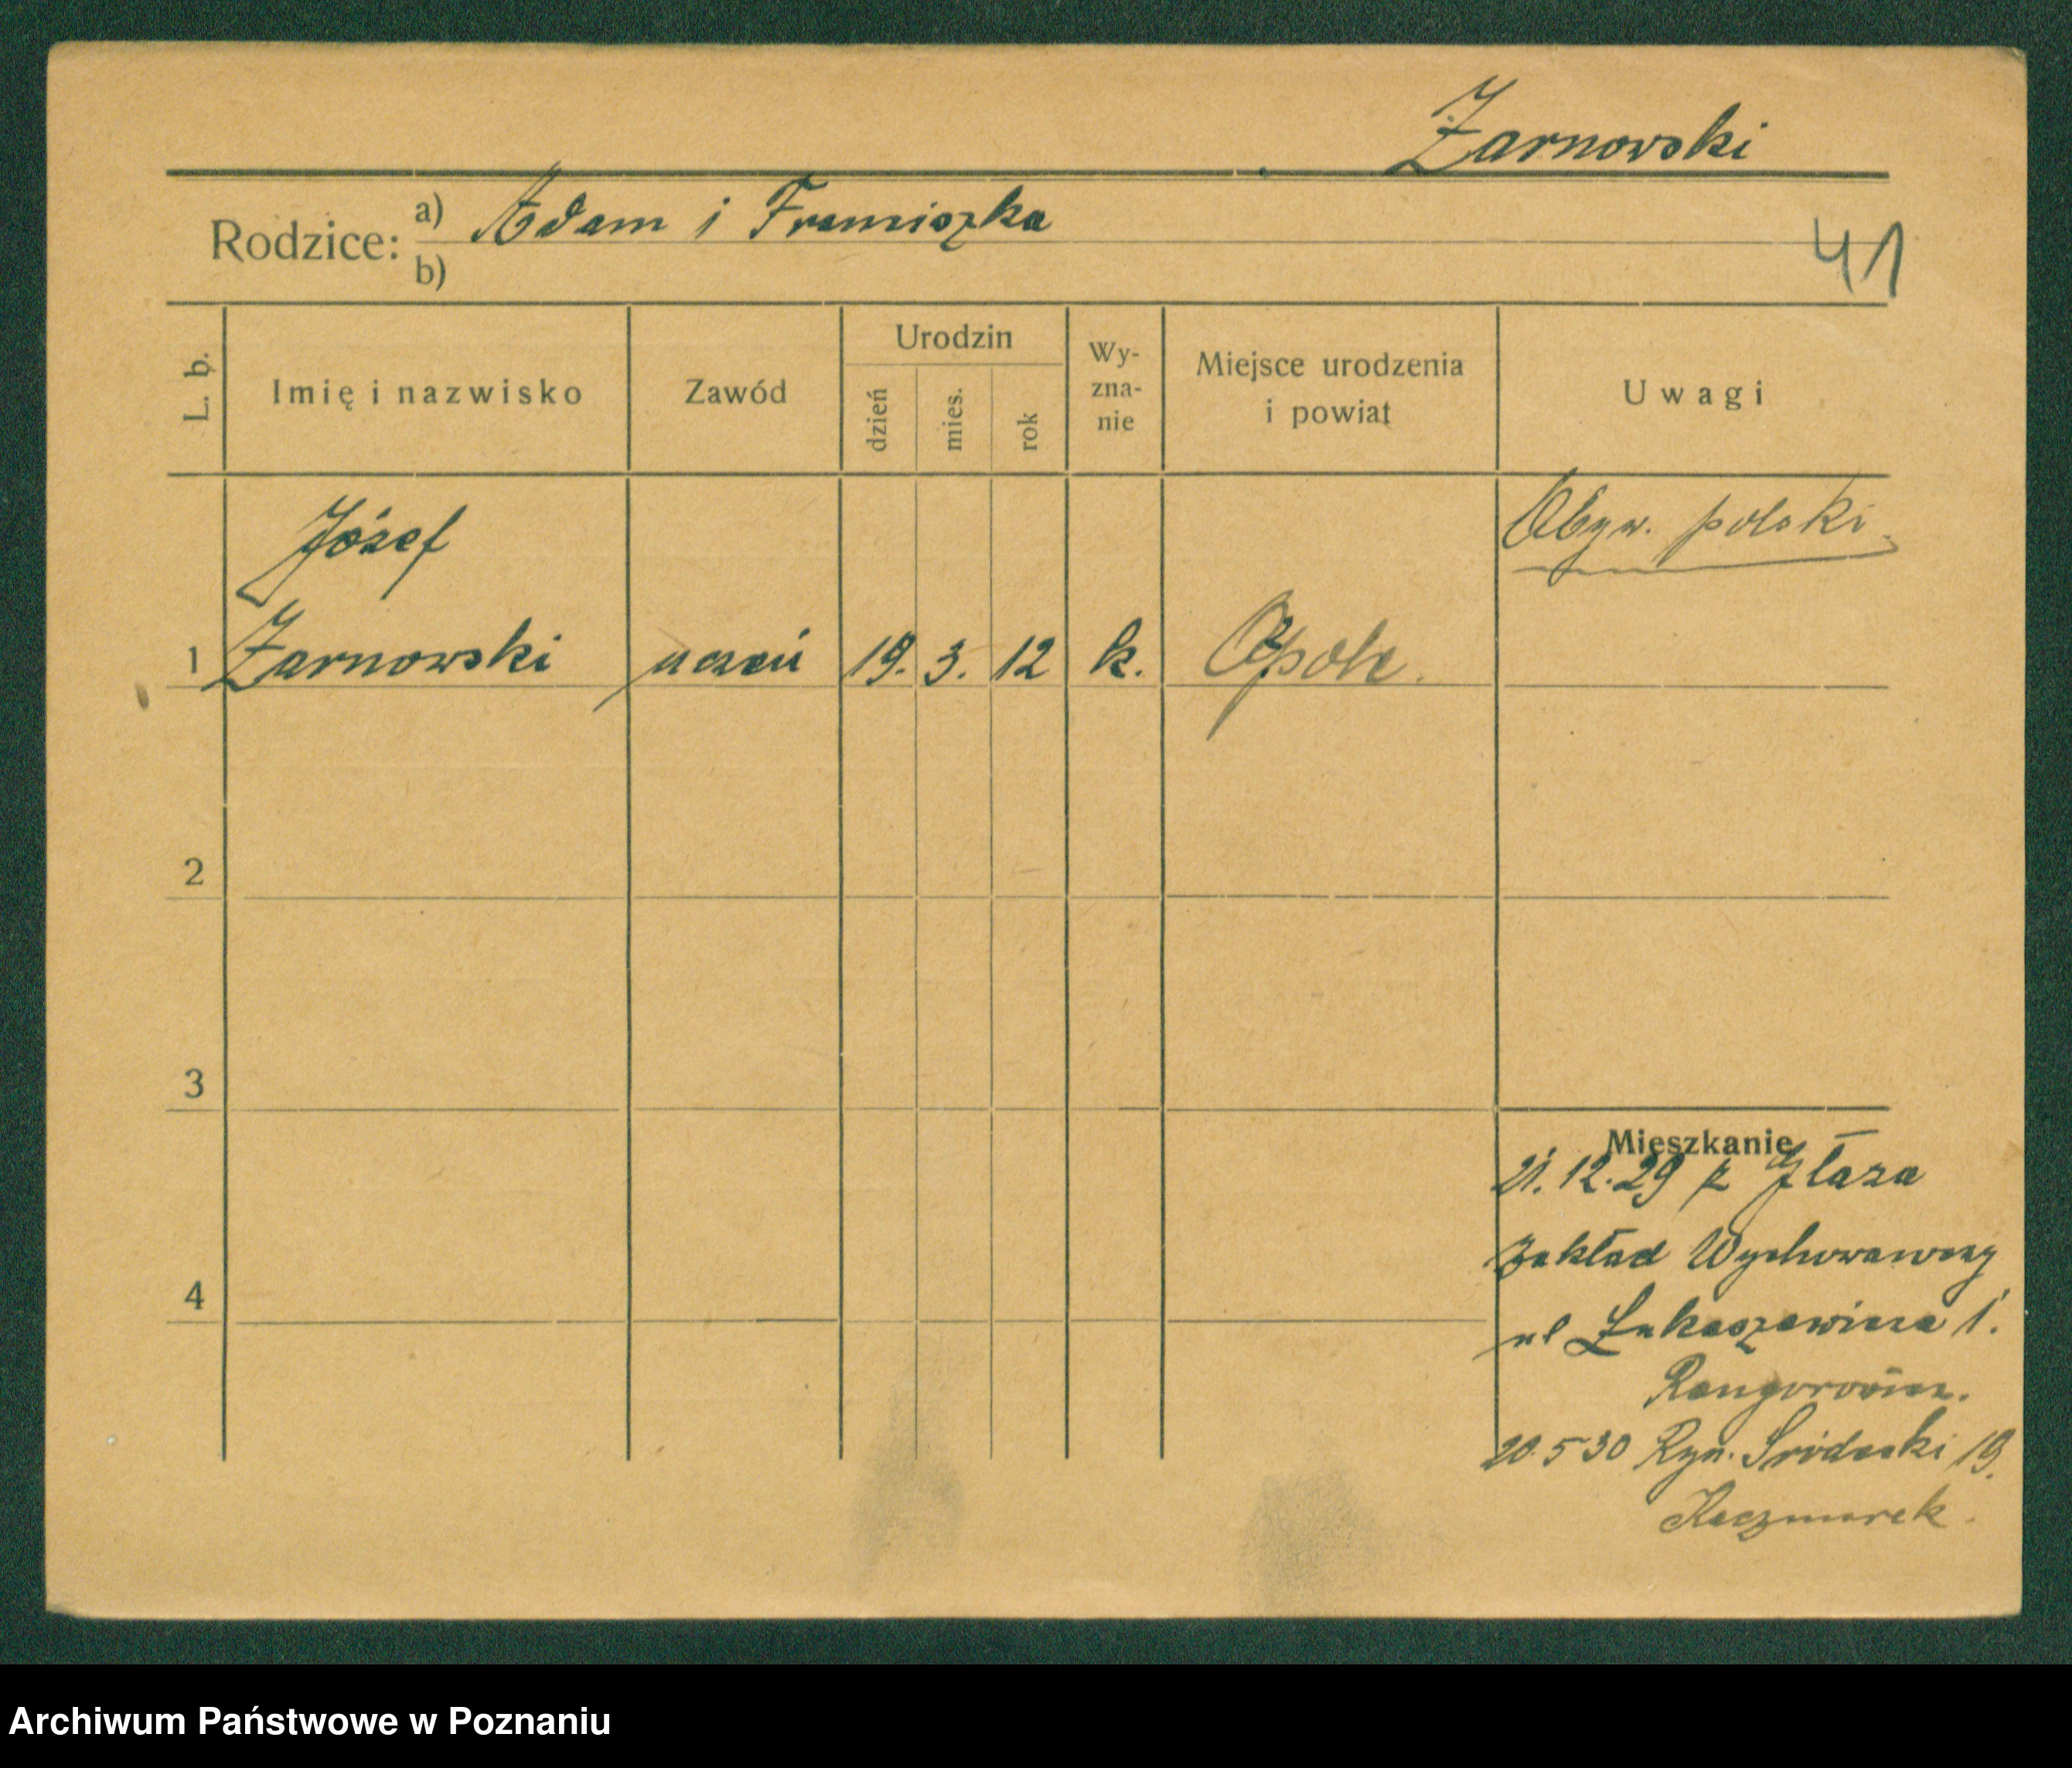 Żarnowski
Rodzice: a) Adam i Franciszka
b)
41
L. b.
Imię i nazwisko
Zawód
Urodzin
dzień
mies.
rok
Wy-
zna-
nie
Miejsce urodzenia
i powiat
Uwagi
Józef
Obyw. polski
1 Żarnowski uczeń 19. 3. 12 k. Opole.
2
3
4
Mieszkanie
21. 12. 29 z
Zakład Wychowawczy
ul Łukaszewicza 1.
20. 5 30 Ryn. Śródecki 19.
Kaczmarek.
Archiwum Państwowe w Poznaniu